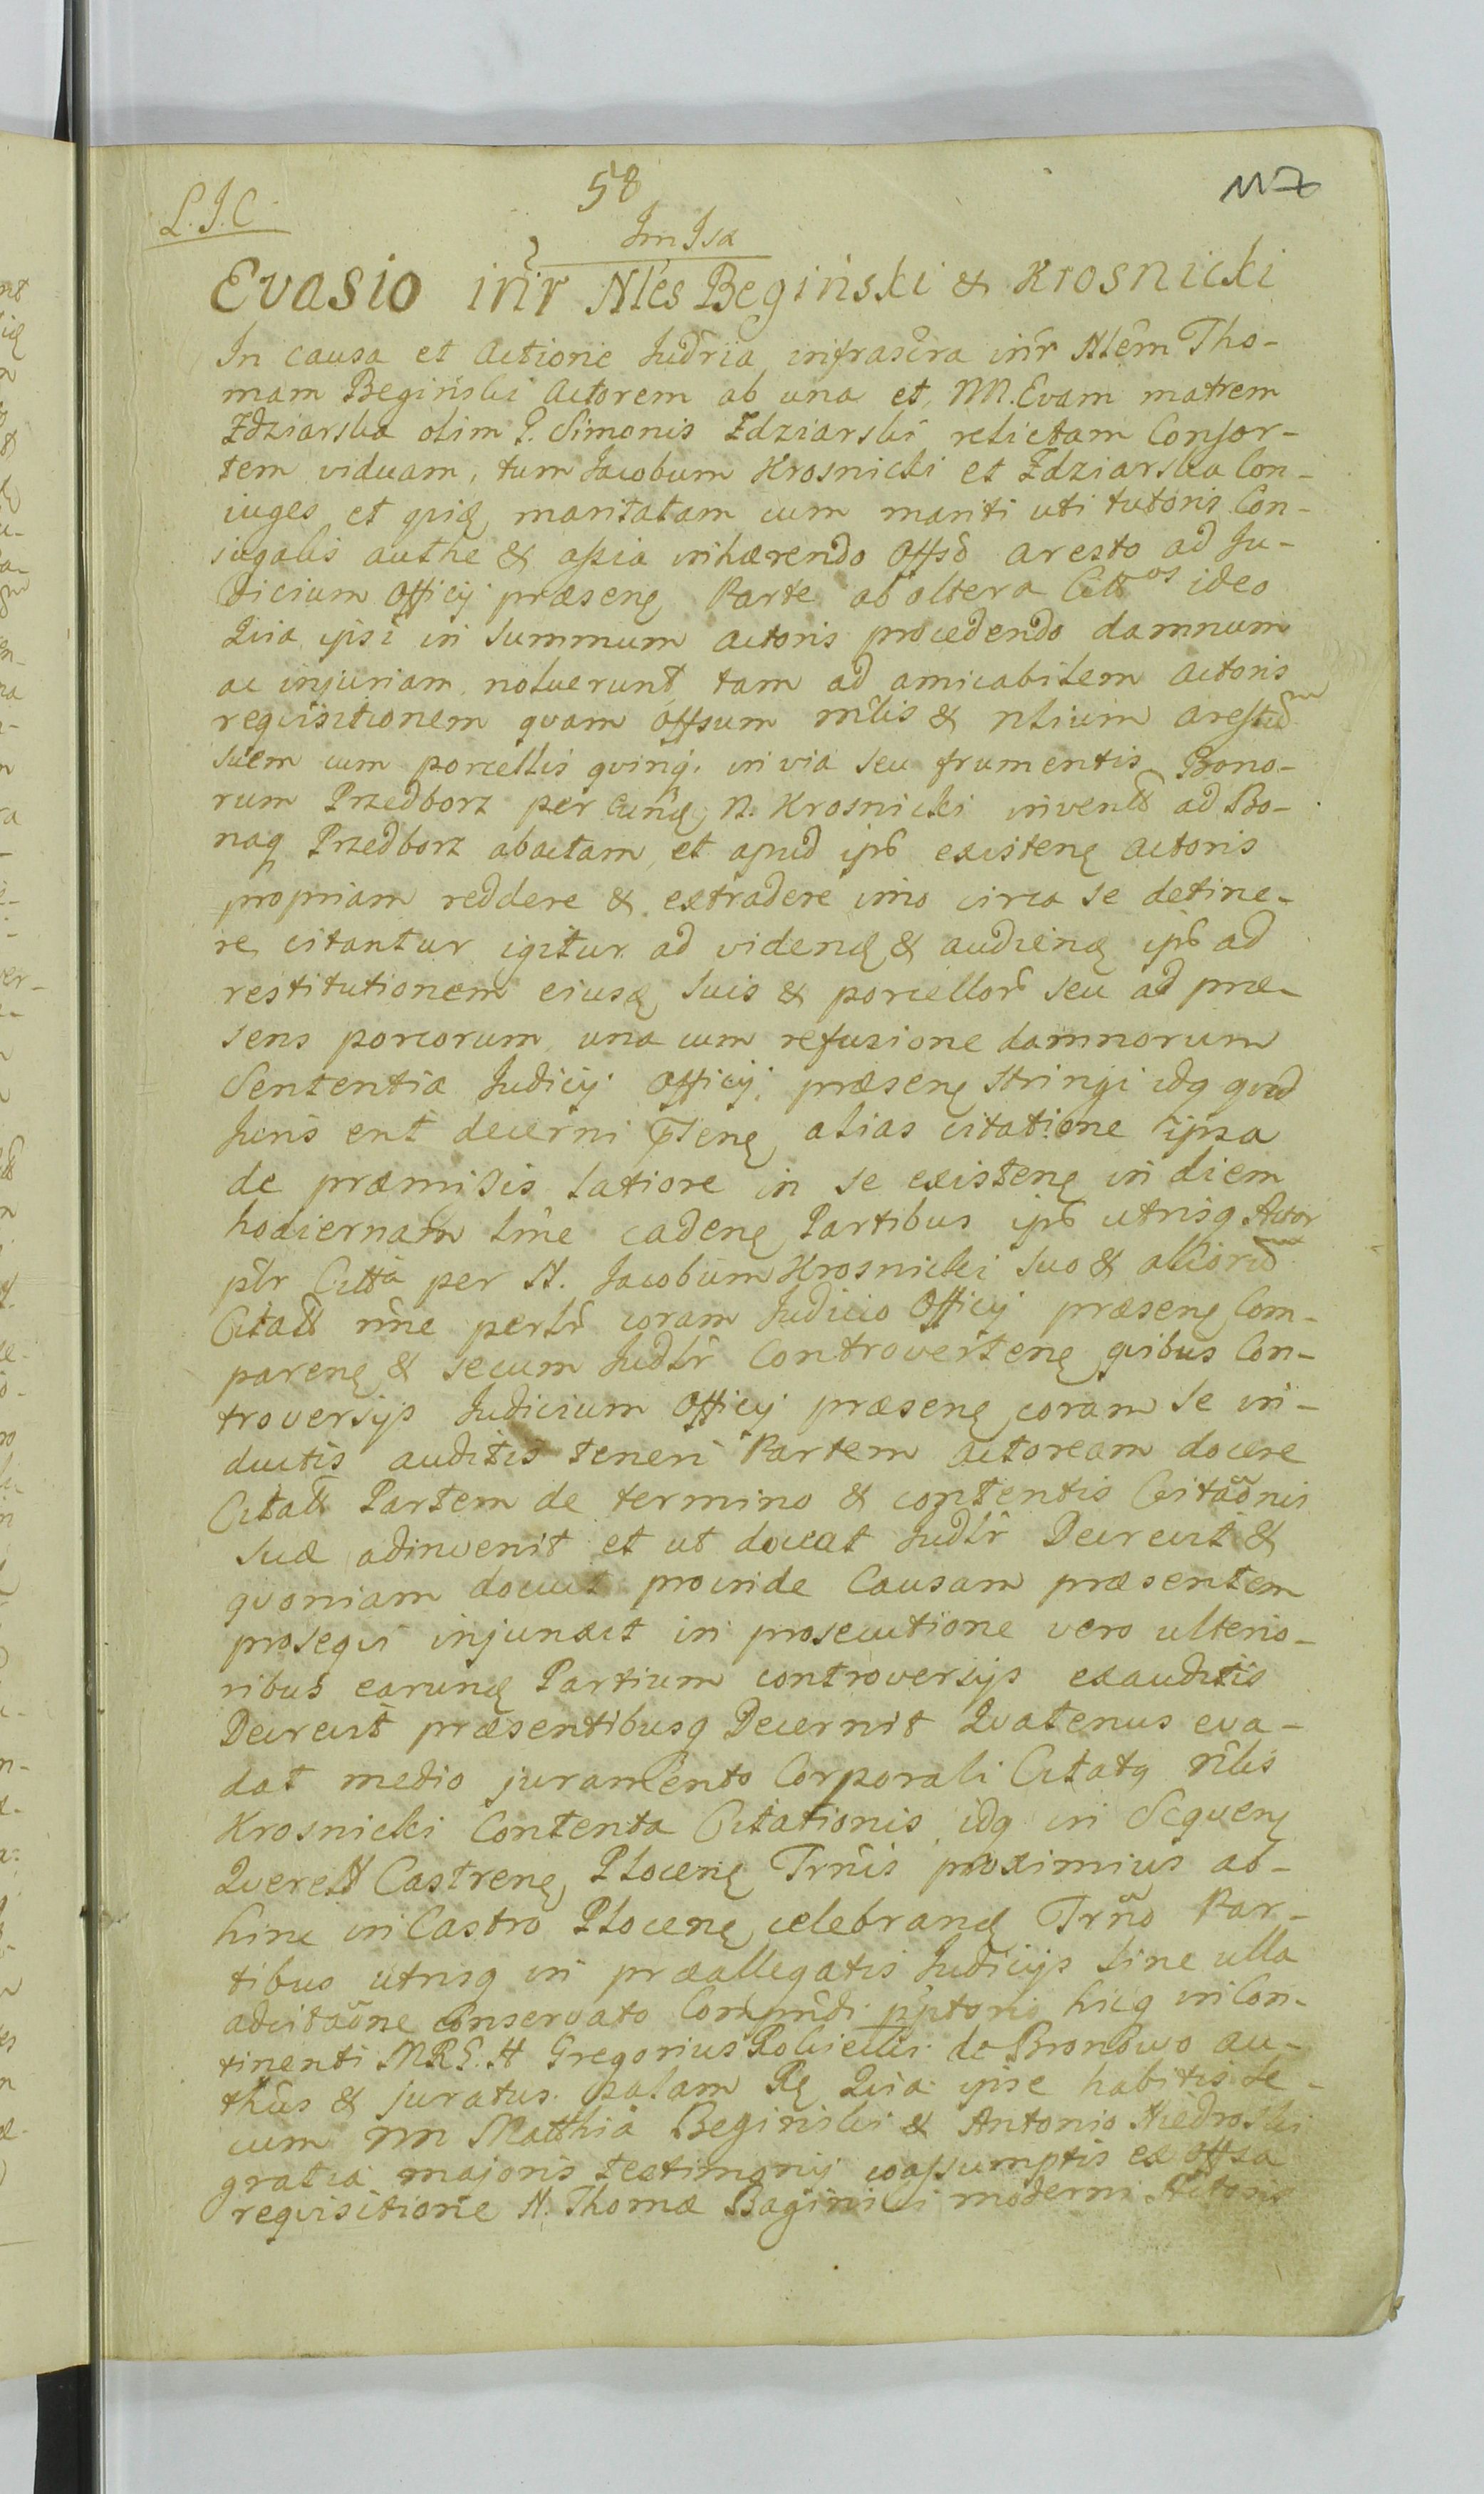 58
117
L.J.C.
Im Jsa
Evasio inr̃ Nles Begiński & Krosnicki
In causa et Actione Judr̃ia infrascr̃a inr̃ Nlẽm Tho-
mam Begiński Actorem ab una et NN. Evam matrem
Zdziarska olim G. Simonis Zdziarski relictam Consor-
tem viduam, tum Jacobum Krosnicki et Zdziarska Con-
iuges et maritatam cum mariti uti tutoris Con-
jugalis authe & assia inhærendo Offsõ aresto ad Ju-
dicium Officij præsenę Parte ab altera Citt͠os ideo
Quia ipsi in summum actoris procedendo damnum
ac injuriam noluerunt tam ad amicabilem actoris
requisitionem quam offsum mĩlis & nlium arestũ
suem cum porcellis quinq. in via seu frumentis Bono-
rum Przedborz per eunđ N. Krosnicki invent͠ ad Bo-
naq Przedborz abactam et apud ips͠ existenę actoris
propriam reddere & extradere imo circa se detine-
re citantur igitur ad videnđ & audienđ ips͠ ad
restitutionem eiusđ suis & porcellor͠ seu ad præ-
sens porcorum una cum refusione damnorum
Sententia Judicij Officij præsenę stringi idq quid
Juris erit decerni p̃senę alias citatione ipsa
de præmissis latiore in se existenę in diem
hodiernam lm̃e cadenę Partibus ips͠ utrisq Actor
pl͠r Citt͠a per N. Jacobum Krosnicki suo & alior͠u
Citatt͠ nĩne perlr͠ coram Judicio Officij præsenę Com-
parenę & secum Judl͠r Controvertenę quibus Con-
troversijs Judicium Officij præsenę coram se in-
ductis auditis teneri Partem actoream docere
Citatt͠ Partem de termino & contentis Citão͠nis
suæ adinvenit et ut doceat Judl͠r Decrevit &
quoniam docuit proinde Causam præsentem
prosequi injunxit in prosecutione vero ulterio-
ribus earunđ Partium controversijs exauditis
Decrevit præsentibusq Decernit Quatenus eva-
dat medio juramento Corporali Citatq nl͠is
Krosnicki Contenta Citationis idq in Sequenę
Querell͠ Castrenę Plocenę Trñis proximius ab-
hinc in Castro Plocenę celebranđ Trño Par-
tibus utrisq in præallegatis Judicijs sine ulla
adcitão͠ne conservato hicq in Con-
tinenti MRG. N Gregorius de Bronowo au-
thũs & juratus palam Rę Quia ipse habitis se-
cum NN Matthia Begiński & Antonio Niedroski
gratia majoris testimonij coassumptis ex offsa
requisitione N. Thomæ Bagiński moderni Actoris